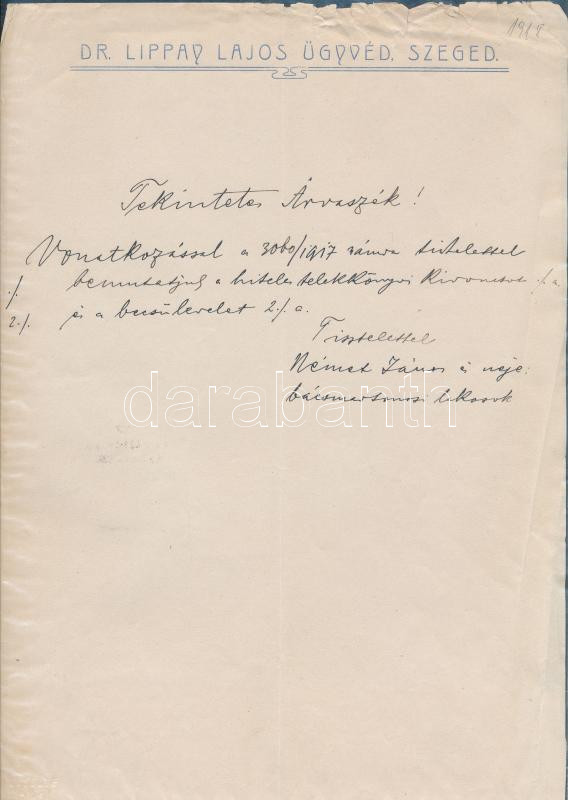 1918
DR. LIPPAY LAJOS ÜGYVÉD, SZEGED.
Tekintetes Árvaszék!
Vonatkozással a 3060/1917 számra tisztelettel
./. bemutatjuk a hiteles telekkönyvi kivonatot ./. a.
2./. és a becsülevelet 2./. a.
Tisztelettel
Német János és neje
bácsmartonosi lakosok
darabanth